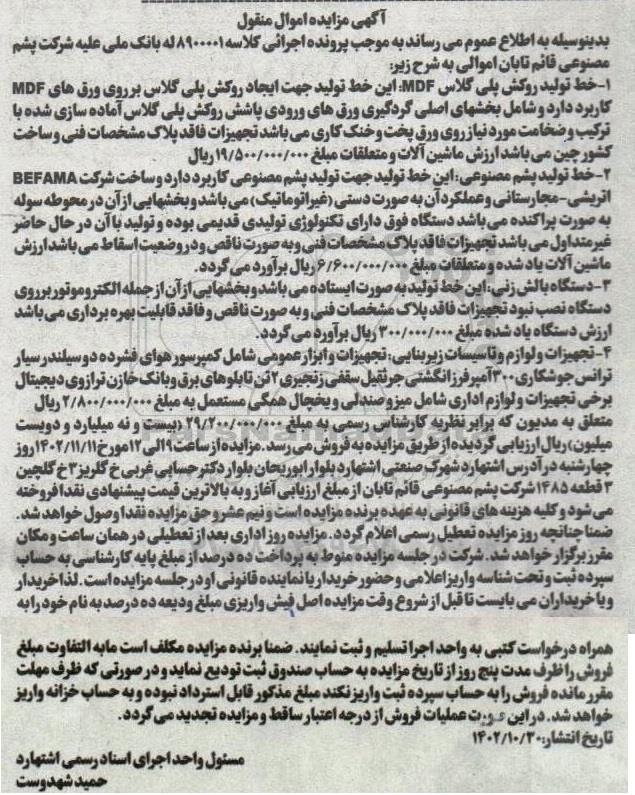 آگهی مزایده اموال منقول
بدینوسیله به اطلاع عموم می رساند به موجب پرونده اجرائی کلاسه ۸۹۰۰۰۰۱ له بانک ملی علیه شرکت پشم
مصنوعی قائم تابان اموالی به شرح زیر:
۱-خط تولید روکش پلی گلاس MDF: این خط تولید جهت ایجاد روکش پلی گلاس بر روی ورق های MDF
کاربرد دارد و شامل بخشهای اصلی گردگیری ورق های ورودی پاشش روکش پلی گلاس آماده سازی شده با
ترکیب و ضخامت مورد نیاز روی ورق پخت و خنک کاری می باشد تجهیزات فاقد پلاک مشخصات فنی و ساخت
کشور چین می باشد ارزش ماشین آلات و متعلقات مبلغ ۱۹/۵۰۰/۰۰۰/۰۰۰ ریال
۲-خط تولید پشم مصنوعی: این خط تولید جهت تولید پشم مصنوعی کاربرد دارد و ساخت شرکت BEFAMA
اتریشی-مجارستانی و عملکرد آن به صورت دستی (غیر اتوماتیک) می باشد و بخشهایی از آن در محوطه سوله
به صورت پراکنده می باشد دستگاه فوق دارای تکنولوژی تولیدی قدیمی بوده و تولید با آن در حال حاضر
غیر متداول می باشد تجهیزات فاقد پلاک مشخصات فنی و به صورت ناقص و در وضعیت اسقاط می باشد ارزش
ماشین آلات یاد شده و متعلقات مبلغ ۶/۶۰۰/۰۰۰/۰۰۰ ریال برآورد می گردد.
۳-دستگاه بالش زنی: این خط تولید به صورت ایستاده می باشد و بخشهایی از آن از جمله الکتروموتور بر روی
دستگاه نصب نبود تجهیزات فاقد پلاک مشخصات فنی و به صورت ناقص و فاقد قابلیت بهره برداری می باشد
ارزش دستگاه یاد شده مبلغ ۳۰۰/۰۰۰/۰۰۰ ریال برآورد می گردد.
۴-تجهیزات و لوازم و تاسیسات زیربنایی: تجهیزات و ابزار عمومی شامل کمپرسور هوای فشرده دو سیلندر سیار
ترانس جوشکاری ۳۰۰ آمپر فرز انگشتی جرثقیل سقفی زنجیری ۲ تن تابلوهای برق و بانک خازن ترازوی دیجیتال
برخی تجهیزات و لوازم اداری شامل میز و صندلی و یخچال همگی مستعمل به مبلغ ۲/۸۰۰/۰۰۰/۰۰۰ ریال
متعلق به مدیون که برابر نظریه کارشناس رسمی به مبلغ ۲۹/۲۰۰/۰۰۰/۰۰۰ (بیست و نه میلیارد و دویست
میلیون) ریال ارزیابی گردیده از طریق مزایده به فروش می رسد. مزایده از ساعت ۹ الی ۱۲ مورخ ۱۴۰۲/۱۱/۱۱ روز
چهارشنبه در آدرس اشتهارد شهرک صنعتی اشتهارد بلوار ابوریحان بلوار دکتر حسابی غربی خ گلریز ۳ خ گلچین
۳ قطعه ۱۴۸۵ شرکت پشم مصنوعی قائم تابان از مبلغ ارزیابی آغاز و به بالاترین قیمت پیشنهادی نقدا فروخته
می شود و کلیه هزینه های قانونی به عهده برنده مزایده است و نیم عشر و حق مزایده نقدا وصول خواهد شد.
ضمنا چنانچه روز مزایده تعطیل رسمی اعلام گردد. مزایده روز اداری بعد از تعطیلی در همان ساعت و مکان
مقرر برگزار خواهد شد. شرکت در جلسه مزایده منوط به پرداخت ده درصد از مبلغ پایه کارشناسی به حساب
سپرده ثبت و تحت شناسه واریز اعلامی و حضور خریدار یا نماینده قانونی او در جلسه مزایده است. لذا خریدار
و یا خریداران می بایست تا قبل از شروع وقت مزایده اصل فیش واریزی مبلغ ودیعه ده درصد به نام خود را به
همراه درخواست کتبی به واحد اجرا تسلیم و ثبت نمایند. ضمنا برنده مزایده مکلف است مابه التفاوت مبلغ
فروش را ظرف مدت پنج روز از تاریخ مزایده به حساب صندوق ثبت تودیع نماید و در صورتی که ظرف مهلت
مقرر مانده فروش را به حساب سپرده ثبت واریز نکند مبلغ مذکور قابل استرداد نبوده و به حساب خزانه واریز
خواهد شد. در این صورت عملیات فروش از درجه اعتبار ساقط و مزایده تجدید می گردد.
تاریخ انتشار: ۱۴۰۲/۱۰/۳۰
مسئول واحد اجرای اسناد رسمی اشتهارد
حمید شهدوست